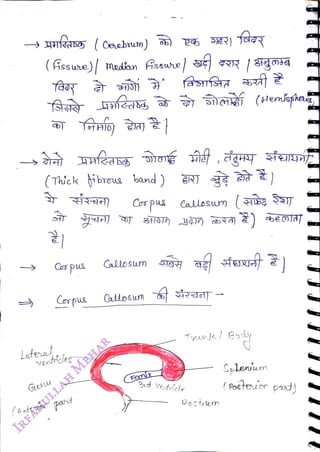 → प्रमस्तिष्क (Cerebrum) को एक गहरा विदर
(fissure) / Median fissure / खड़ी दरार / अनुलम्ब
विदर दो भागों में विभाजित करती है
जिससे प्रमस्तिष्क के दो गोलार्द्धों (Hemisphere)
का निर्माण होता है |
→ दोनो प्रमस्तिष्क गोलार्द्ध मोटी, तंतुमय संधायनी
(Thick fibrous band) द्वारा जुड़े होते है |
ये संरचना Corpus Callosum (सफेद रेशा
जो सूचना का आदान प्रदान करता है) कहलाता
है |
→ Corpus Callosum सबसे बड़ी संधायनी है |
⇒ Corpus Callosum की संरचना -
Trunk / Body
Lateral ventricles
Splenium
(Posterior part)
Genu
(Anterior part
Fornix
3rd Ventricle
Rostrum
IRFANULLAH MAZHAR